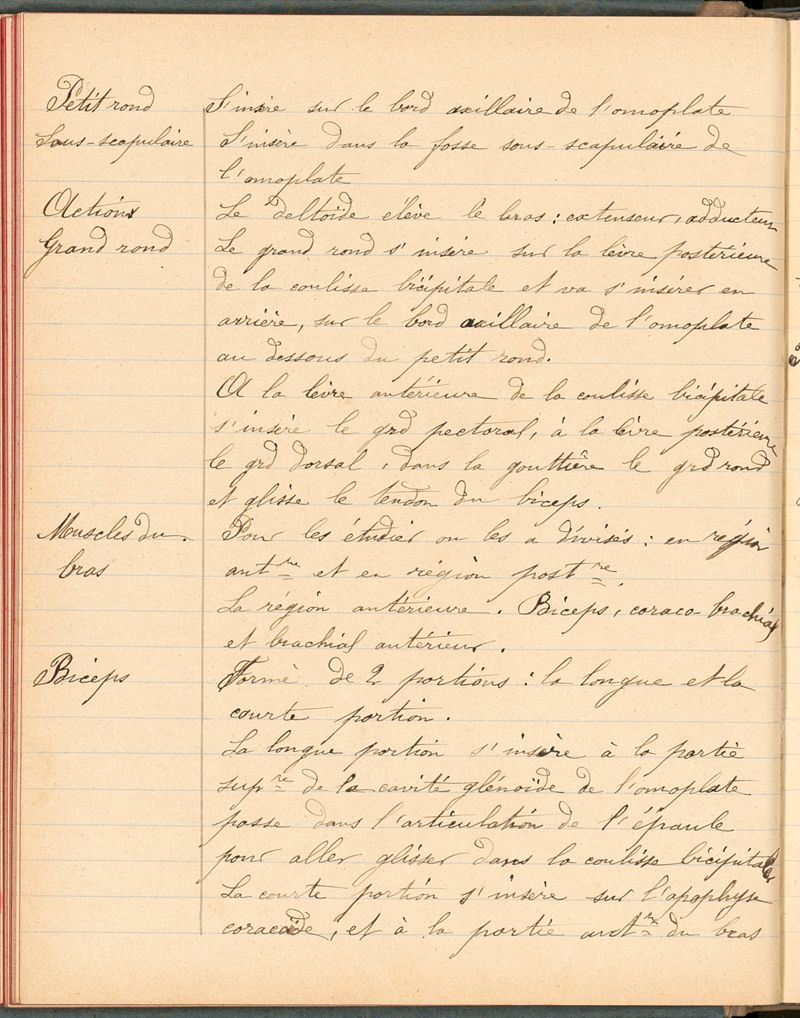 Petit rond S'insère sur le bord axillaire de l'omoplate
Sous-scapulaire S'insère dans la fosse sous-scapulaire de
l'omoplate
Actions Le deltoïde élève le bras : extenseur, adducteur
Grand rond Le grand rond s'insère sur la lèvre postérieure
de la coulisse bicipitale et va s'insérer en
arrière, sur le bord axillaire de l'omoplate
au dessous du petit rond.
A la lèvre antérieure de la coulisse bicipitale
s'insère le grd pectoral, à la lèvre postérieure
le grd dorsal, dans la gouttière le grd rond
et glisse le tendon du biceps.
Muscles du Pour les étudier on les a divisés : en région
bras antre et en région postre.
La région antérieure. Biceps, coraco-brachial
et brachial antérieur.
Biceps Formé de 2 portions : la longue et la
courte portion.
La longue portion s'insère à la partie
supre de la cavité glénoïde de l'omoplate
passe dans l'articulation de l'épaule
pour aller glisser dans la coulisse bicipitale
La courte portion s'insère sur l'apophyse
coracoïde, et à la partie antre du bras